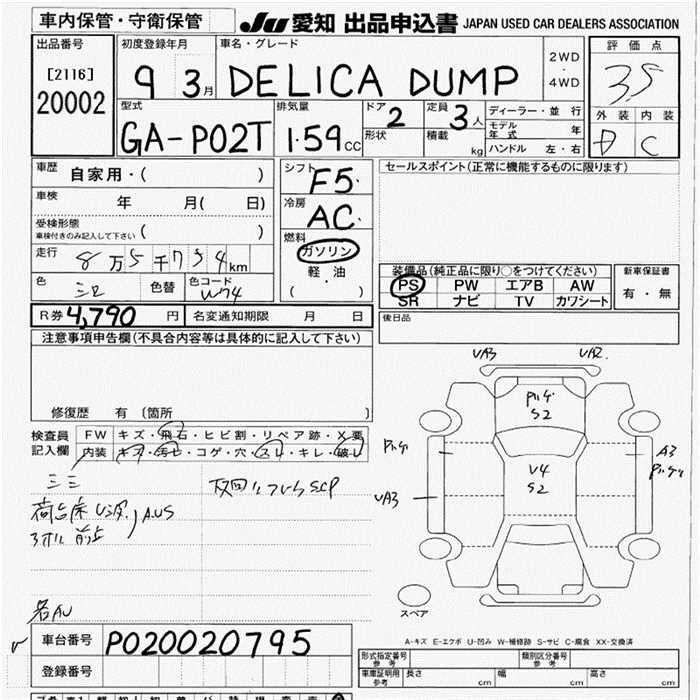 車内保管・守衛保管 JU愛知 出品申込書 JAPAN USED CAR DEALERS ASSOCIATION
出品番号
[2116]
20002
初度登録年月
9 3月
車名・グレード
DELICA DUMP
2WD
・
4WD
評価点
3.5
型式
GA-P02T
排気量
1.59cc
ドア
2
定員
3人
形状
積載
kg
ディーラー・並 行
モデル年式 年
ハンドル 左・右
外装 内装
D C
車歴 自家用・( )
車検 年 月( 日)
受検形態
車検付きのみ記入して下さい ( )
走行 8万5千754km
色 色替 色コード
W74
シフト
F5
冷房
AC
燃料
ガソリン
・
軽油
・
( )
セールスポイント(正常に機能するものに限ります)
装備品(純正品に限り○をつけてください)
PS PW エアB AW
SR ナビ TV カワシート
新車保証書
有・無
R券 4,790 円 名変通知期限 月 日
後日品
注意事項申告欄(不具合内容等は具体的に記入して下さい)
修復歴 有 〔箇所 〕
検査員記入欄
FW キズ・飛石・ヒビ割・リペア跡・X要
内装 キズ・汚レ・コゲ・穴・スレ・キレ・破レ
UA3 UA2
S2
U4
S2
A3
UA3
A,US
スペア
A-キズ E-エクボ U-凹み W-補修跡 S-サビ C-腐食 XX-交換済
車台番号 P020020795
登録番号
形式指定番号
参考
類別区分番号
参考
車庫証明用
参考
長さ cm 幅 cm 高さ cm